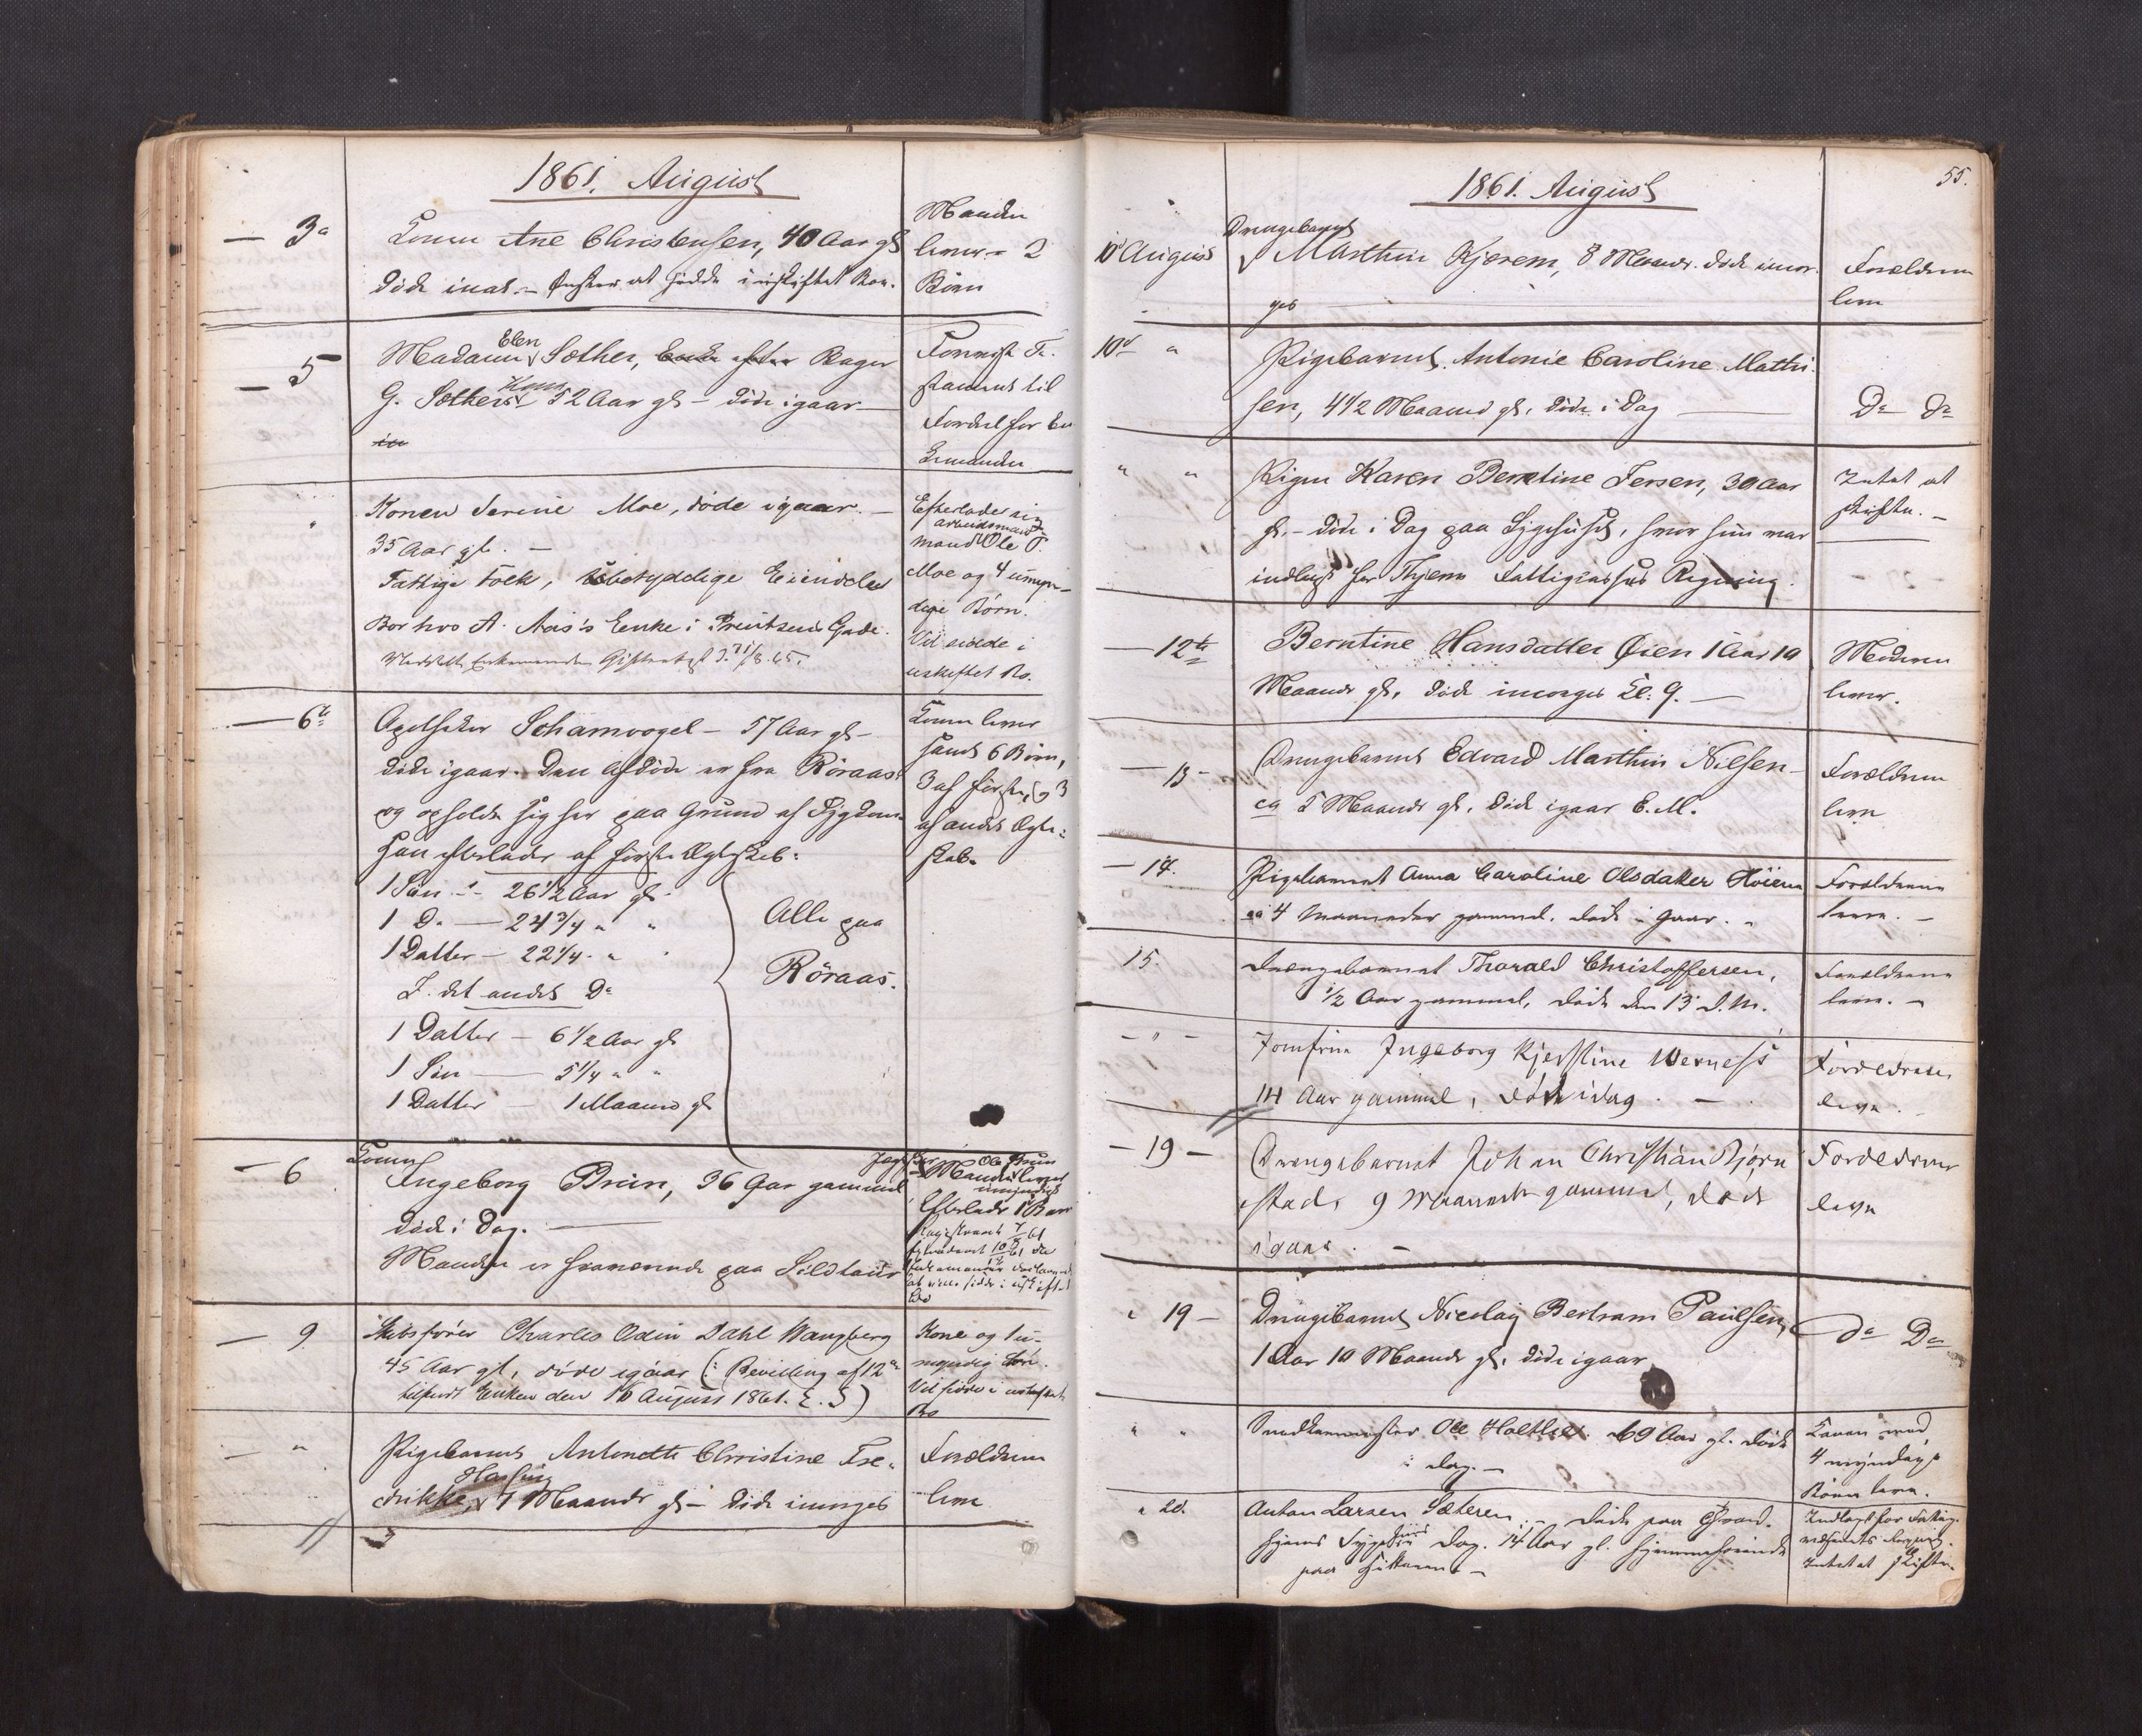 1861. August
— 3de
Konen Ane Christensen, 40 Aar gl
døde inat. – Ønsker at sidde i uskiftet Boe.
Manden
lever – 2
Børn
— 5
Madame Elen Sæther, Enke efter Bager
G. Sæthers Kone 52 Aar gl – døde igaar —
Formuen
til
Fordel for En
kemanden
"
Konen Serine Moe, døde igaar. –
35 Aar gl. –
Fattige Folk, ubetydelige Eiendele
Bor hos A. Aas's Enke i Prinsens Gade.
Meddelt Enkemanden Giftenattest d. 31/8 65.
Efterlader sig
arbeidsmand
mand Ole T.
Moe og 4 umyn-
dige Børn.
Vil sidde i
uskiftet Bo.
— 6te
Apotheker Schamvogel – 57 Aar gl –
døde igaar. Den Afdøde er fra Röraas
og opholdt sig her paa Grund af Sygdom
Han efterlader af første Ægteskab:
1 Søn – 26 1/2 Aar gl
1 Do — 24 3/4 " "
1 Datter – 22 1/4 " "
I det andet Do
1 Datter – 6 1/2 Aar gl
1 Søn — 5 1/4 " "
1 Datter – 1 Maaned gl
Alle paa
Röraas.
Konen lever
samt 6 Børn,
3 af første, og 3
af andet Ægte-
skab.
— 6
Konen
Ingeborg Brun, 36 Aar gammel
døde i Dag. —
Manden er fraværende paa Sildefiske
Ole Brun
Manden lever
umyndigt
Efterlader 1 Barn
at ville sidde i uskiftet
Bo
— 9.
Skibsfører Charles Odin Dahl Wangberg
45 Aar gl, døde igaar (: Bevilling af 12te
tilsendt Enken den 16 August 1861. E. S)
Kone og 1 u-
myndig Søn.
Vil sidde i uskiftet
Bo
— "
Pigebarnet Antonette Christine Fre-
drikke Hassing, 7 Maaneder gl – døde imorges
Forældrene
leve
55.
1861. August
10de August
Drengebarnet
Marthin Kjerem, 8 Maaneder. døde imor-
ges
Forældrene
leve
10de "
Pigebarnet Antonie Caroline Mathi-
sen, 4 1/2 Maaned gl, døde i Dag —
Do Do
" "
Pigen Karen Berntine Jensen, 30 Aar
gl. – døde i Dag paa Sygehuset, hvor hun var
indlagt for Fattigcassens Regning.
Intet at
skifte. –
— 12te
Berntine Hansdatter Øien 1 Aar 10
Maaneder gl, døde imorges Kl. 9. —
Moderen
lever.
— 13 –
Drengebarnet Edvard Marthin Nilsen –
ca 5 Maaneder gl, døde igaar E.M.
Forældrene
leve
— 14.
Pigebarnet Anna Caroline Olsdatter Høiem
ca 4 Maaneder gammel. døde i gaar. –
Forældrene
leve. –
15.
Drengebarnet Thorald Christoffersen,
1/2 Aar gammel, døde den 13 d.M.
Forældrene
leve. –
– " –
Jomfru Ingeborg Kjerstine Werness
14 Aar gammel, døde idag. –
Forældrene
leve. –
— 19 —
Drengebarnet Johan Christian Bjørn
stad, 9 Maaneder gammel, døde
igaar. –
Forældrene
leve
" 19 –
Drengebarnet Nicolay Bertram Paulsen,
1 Aar 10 Maaneder gl, døde igaar
do Do
" "
Snedkermester Ole Holthe 69 Aar gl. døde
i dag. –
Konen med
4 myndige
Børn leve.
" 20.
Anton Larsen Sæteren. – døde paa
hjems Sygehuus Dag. 14 Aar gl. hjemmehørende
paa Hitteren. –
Indlagt for Fattig-
væsenets Regning.
Intet at skifte.